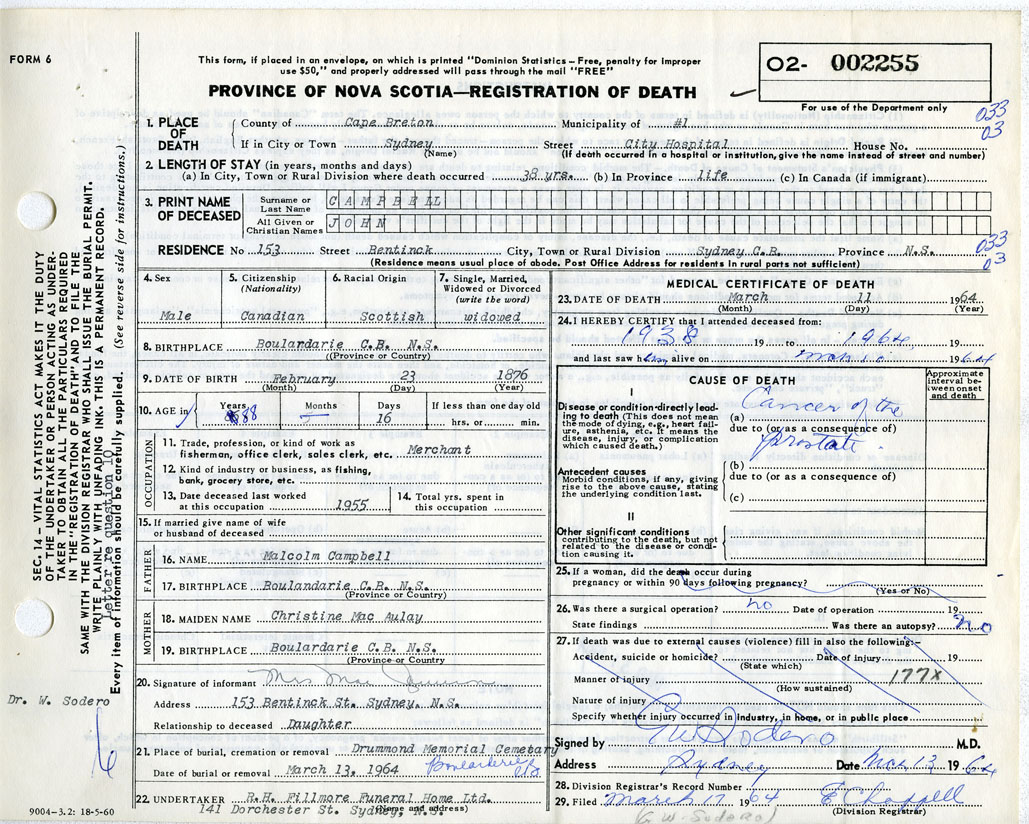 FORM 6
This form, if placed in an envelope, on which is printed "Dominion Statistics – Free, penalty for improper
use $50," and properly addressed will pass through the mail "FREE"
PROVINCE OF NOVA SCOTIA—REGISTRATION OF DEATH
02- 002255
For use of the Department only
033
03
1. PLACE OF DEATH
County of Cape Breton Municipality of #1
If in City or Town Sydney Street City Hospital House No.
(Name) (If death occurred in a hospital or institution, give the name instead of street and number)
2. LENGTH OF STAY (in years, months and days)
(a) In City, Town or Rural Division where death occurred 38 yrs. (b) In Province life (c) In Canada (if immigrant)
3. PRINT NAME OF DECEASED
Surname or Last Name CAMPBELL
All Given or Christian Names JOHN
RESIDENCE No 153 Street Bentinck City, Town or Rural Division Sydney C.B. Province N.S.
033
03
(Residence means usual place of abode. Post Office Address for residents in rural parts not sufficient)
4. Sex Male
5. Citizenship (Nationality) Canadian
6. Racial Origin Scottish
7. Single, Married, Widowed or Divorced (write the word) widowed
8. BIRTHPLACE Boulardarie C.B. N.S.
(Province or Country)
9. DATE OF BIRTH February 23 1876
(Month) (Day) (Year)
10. AGE in Years 88 Months – Days 16 If less than one day old hrs. or min.
OCCUPATION
11. Trade, profession, or kind of work as
fisherman, office clerk, sales clerk, etc. Merchant
12. Kind of industry or business, as fishing,
bank, grocery store, etc.
13. Date deceased last worked
at this occupation 1955
14. Total yrs. spent in
this occupation
15. If married give name of wife
or husband of deceased
FATHER
16. NAME Malcolm Campbell
17. BIRTHPLACE Boulandarie C.B. N.S.
(Province or Country)
MOTHER
18. MAIDEN NAME Christine Mac Aulay
19. BIRTHPLACE Boulardarie C.B. N.S.
(Province or Country
20. Signature of informant Mrs Mac
Address 153 Bentinck St. Sydney, N.S.
Relationship to deceased Daughter
21. Place of burial, cremation or removal Drummond Memorial Cemetary
Date of burial or removal March 13, 1964
22. UNDERTAKER R.H. Fillmore Funeral Home Ltd.
(Name and address)
141 Dorchester St. Sydney, N.S.
MEDICAL CERTIFICATE OF DEATH
23. DATE OF DEATH March 11 1964
(Month) (Day) (Year)
24. I HEREBY CERTIFY that I attended deceased from:
1938 19 to 1964, 19
and last saw him alive on Mar 10 1964
CAUSE OF DEATH
Approximate interval between onset and death
I
Disease or condition directly leading to death (This does not mean
the mode of dying, e.g., heart failure, asthenia, etc. It means the
disease, injury, or complication
which caused death.)
(a) Cancer of the
due to (or as a consequence of)
prostate
Antecedent causes
Morbid conditions, if any, giving
rise to the above cause, stating
the underlying condition last.
(b)
due to (or as a consequence of)
(c)
II
Other significant conditions
contributing to the death, but not
related to the disease or condition causing it.
25. If a woman, did the death occur during
pregnancy or within 90 days following pregnancy?
(Yes or No)
26. Was there a surgical operation? no Date of operation 19
State findings Was there an autopsy? no
27. If death was due to external causes (violence) fill in also the following:–
Accident, suicide or homicide? Date of injury 19
(State which)
Manner of injury 177X
(How sustained)
Nature of injury
Specify whether injury occurred in industry, in home, or in public place
Signed by G W Sodero M.D.
Address Sydney Date Mar 13 1964
28. Division Registrar's Record Number
29. Filed March 17 1964 E Chappell
(Division Registrar)
(G W. Sodero)
SEC. 14 – VITAL STATISTICS ACT MAKES IT THE DUTY
OF THE UNDERTAKER OR PERSON ACTING AS UNDERTAKER TO OBTAIN ALL THE PARTICULARS REQUIRED
IN THE "REGISTRATION OF DEATH" AND TO FILE THE
SAME WITH THE DIVISION REGISTRAR WHO SHALL ISSUE THE BURIAL PERMIT.
WRITE PLAINLY WITH UNFADING INK. THIS IS A PERMANENT RECORD.
Letter re question 10
Every item of information should be carefully supplied. (See reverse side for instructions.)
Dr. W. Sodero
9004–3.2: 18-5-60